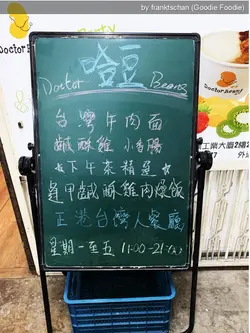 by franktschan (Goodie Foodie)
哈豆
Doctor Beans
台灣牛肉面
鹹酥雞 小香腸
*下午茶精選*
逢甲鹹酥雞肉燥飯
正港台灣人餐廳
星期一至五 11:00-21:
Doctor Beans
工業大廈2樓